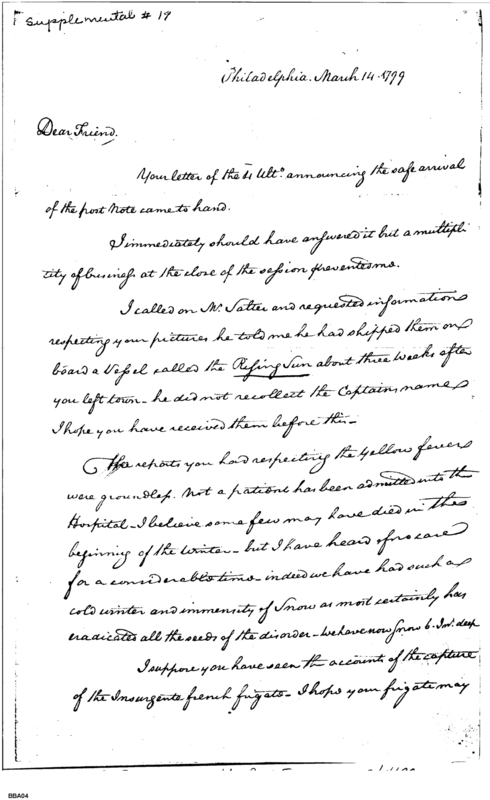 Supplemental # 19
Philadelphia. March 14. 1799
Dear Friend.
Your letter of the 4 Ulto. announcing the safe arrival
of the post Note came to hand.
I immediately should have answered it but a multipli
city of business at the close of the session prevented me.
I called on Mr. Salter and requested information
respecting your pictures he told me he had shipped them on
board a Vessel called the Rising Sun about three weeks after
you left town - he did not recollect the Captains name
I hope you have received them before this -
The reports you had respecting the yellow fever
were groundless. Not a patient has been admitted into the
Hospital - I believe some few may have died in the
beginning of the Winter - but I have heard of no case
for a considerable time - indeed we have had such a
cold winter and immensity of Snow as most certainly has
eradicated all the seeds of the disorder - We have now Snow 6 In. deep
I suppose you have seen the account of the capture
of the Insurgente french frigate - I hope your frigate may
BBA04